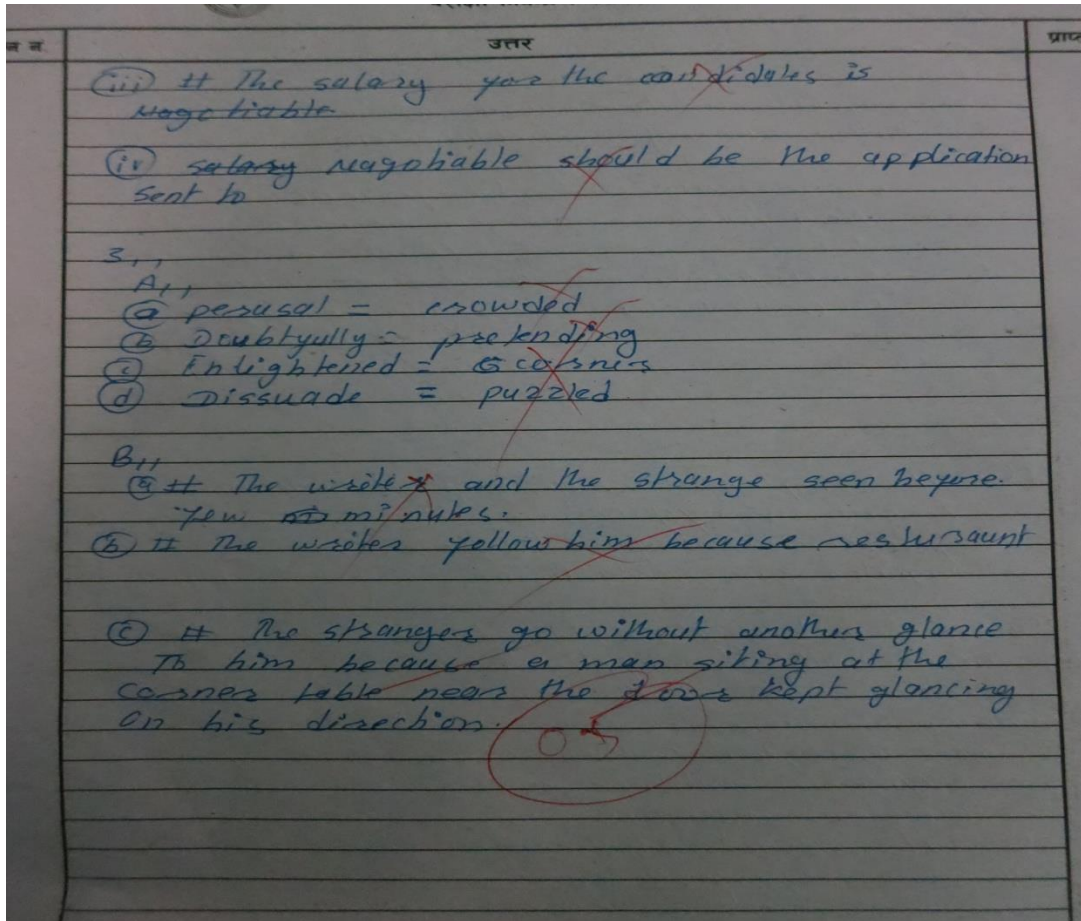 उत्तर
(iii) # The salary yor the candidates is
Nagotiable
(iv) salary Nagotiable should be the application
sent to
3,,
A,,
(a) perusal = crowded
(b) Doubtyully = pretending
(c) Entightened = corners
(d) Dissuade = puzzled
B,,
(a) # The writer and the strange seen beyore.
yew minutes.
(b) # The writer yollow him because resturaunt
(c) # The stranger go without another glance
To him because a man siting at the
corner table near the door kept glancing
on his direction.